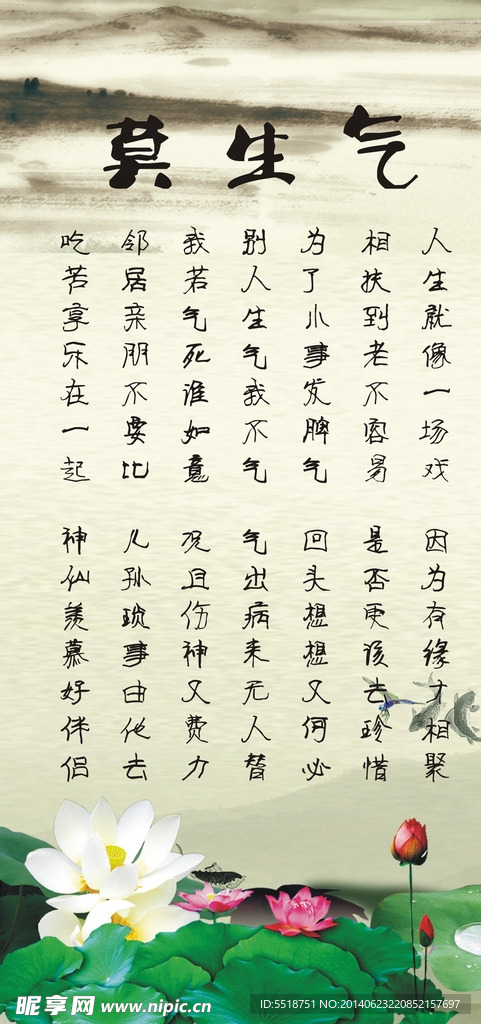 莫生气
人生就像一场戏
因为有缘才相聚
相扶到老不容易
是否更该去珍惜
为了小事发脾气
回头想想又何必
别人生气我不气
气出病来无人替
我若气死谁如意
况且伤神又费力
邻居亲朋不要比
儿孙琐事由他去
吃苦享乐在一起
神仙羡慕好伴侣
昵享网 www.nipic.cn
ID:5518751 NO:20140623220852157697